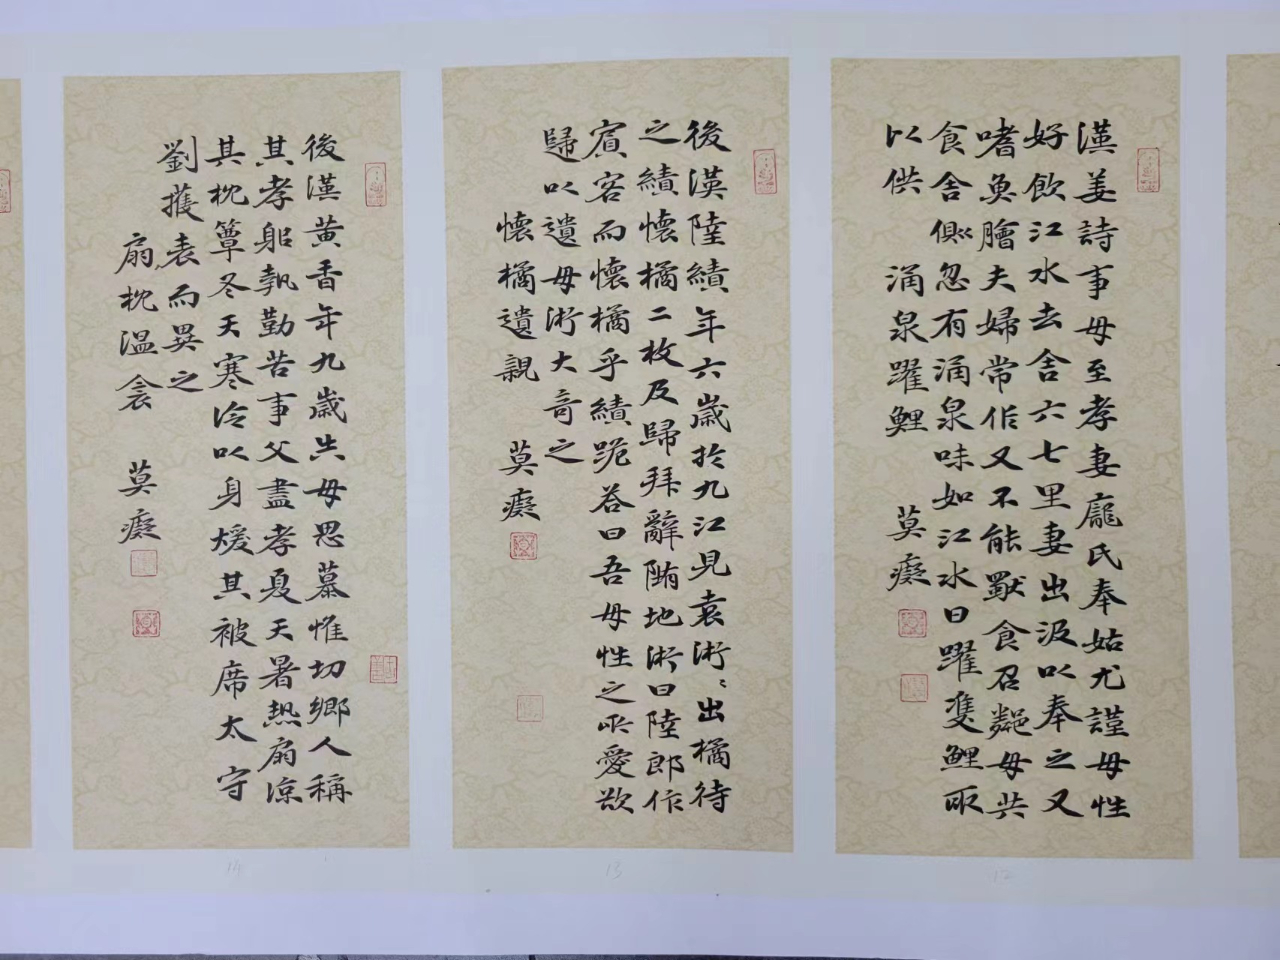 漢姜詩事母至孝妻龐氏奉姑尤謹母性
好飲江水去舍六七里妻出汲以奉之又
嗜魚膾夫婦常作又不能獸食召鄰母共
食舍側忽有涌泉味如江水日躍隻鯉取
以供
涌泉躍鯉
莫癡
後漢陸績年六歲於九江見袁術〻出橘待
之績懷橘二枚及歸拜辭墮地術曰陸郎作
賓客而懷橘乎績跪答曰吾母性之所愛欲
歸以遺母術大奇之
懷橘遺親
莫癡
後漢黃香年九歲失母思慕惟切鄉人稱
其孝躬執勤苦事父盡孝夏天暑熱扇涼
其枕簟冬天寒冷以身煖其被席太守
劉護表而異之
扇枕溫衾
莫癡
12
13
14